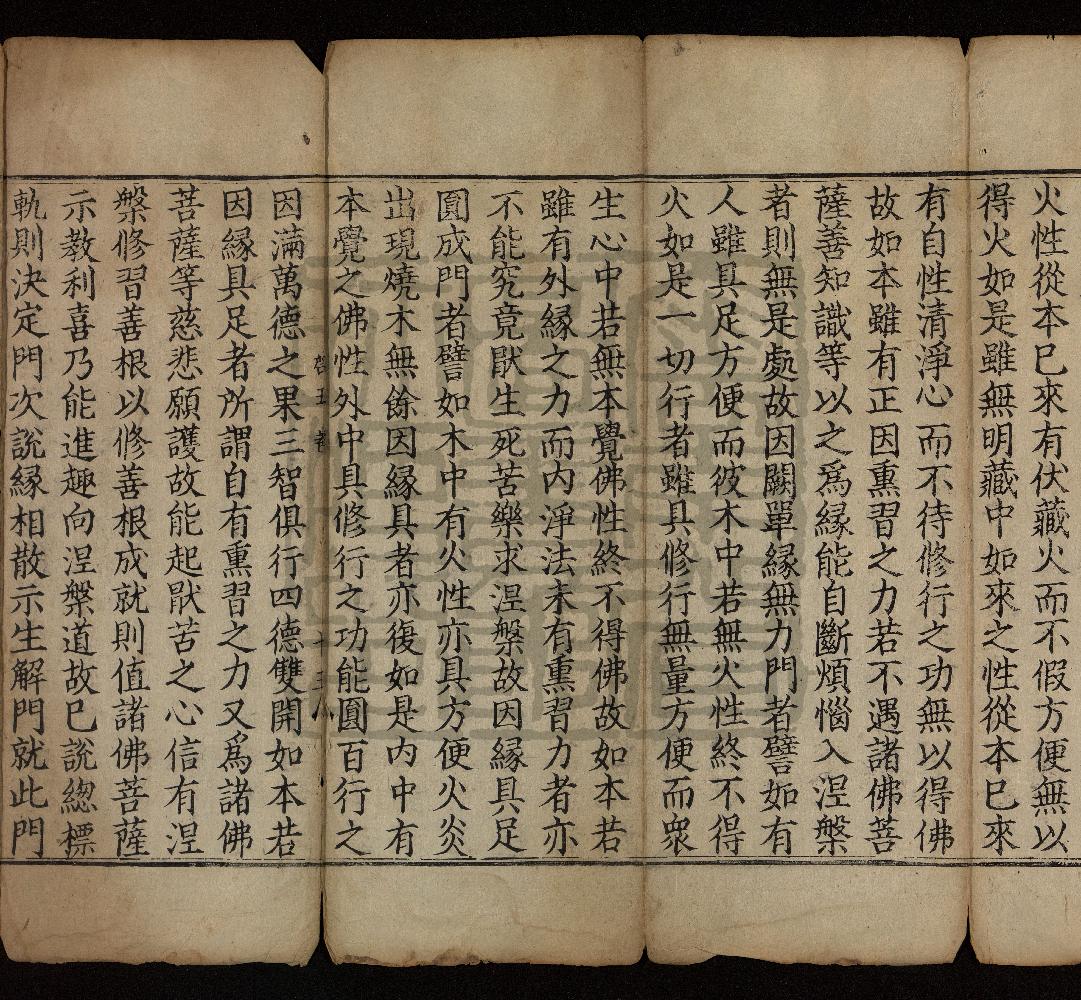 火性從本已來有伏藏火而不假方便無以
得火如是雖無明藏中如來之性從本已來
有自性清淨心而不待修行之功無以得佛
故如本雖有正因熏習之力若不遇諸佛菩
薩善知識等以之爲緣能自斷煩惱入涅槃
者則無是處故因闕單緣無力門者譬如有
人雖具足方便而彼木中若無火性終不得
火如是一切行者雖具修行無量方便而衆
生心中若無本覺佛性終不得佛故如本若
雖有外緣之力而內淨法未有熏習力者亦
不能究竟猒生死苦樂求涅槃故因緣具足
圓成門者譬如木中有火性亦具方便火炎
出現燒木無餘因緣具者亦復如是內中有
本覺之佛性外中具修行之功能圓百行之
因滿萬德之果三智俱行四德雙開如本若
因緣具足者所謂自有熏習之力又爲諸佛
菩薩等慈悲願護故能起猒苦之心信有涅
槃修習善根以修善根成就則值諸佛菩薩
示教利喜乃能進趣向涅槃道故已說總標
軌則決定門次說緣相散示生解門就此門